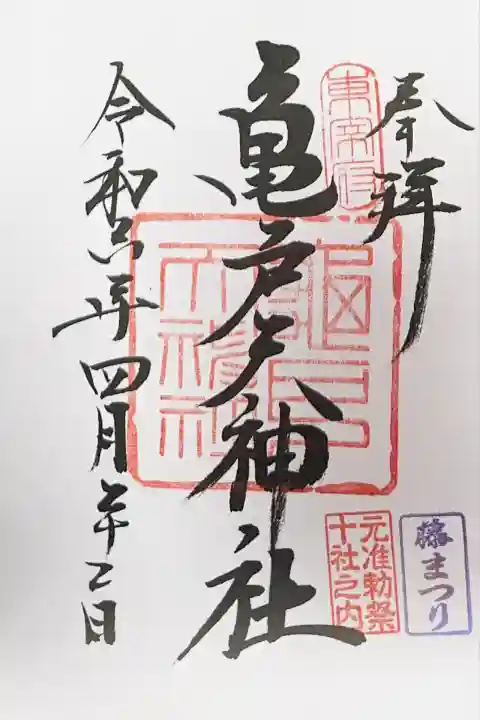 奉拝
東宰府
亀戸天神社
令和六年四月廿二日
元准勅祭
十社之内
藤まつり